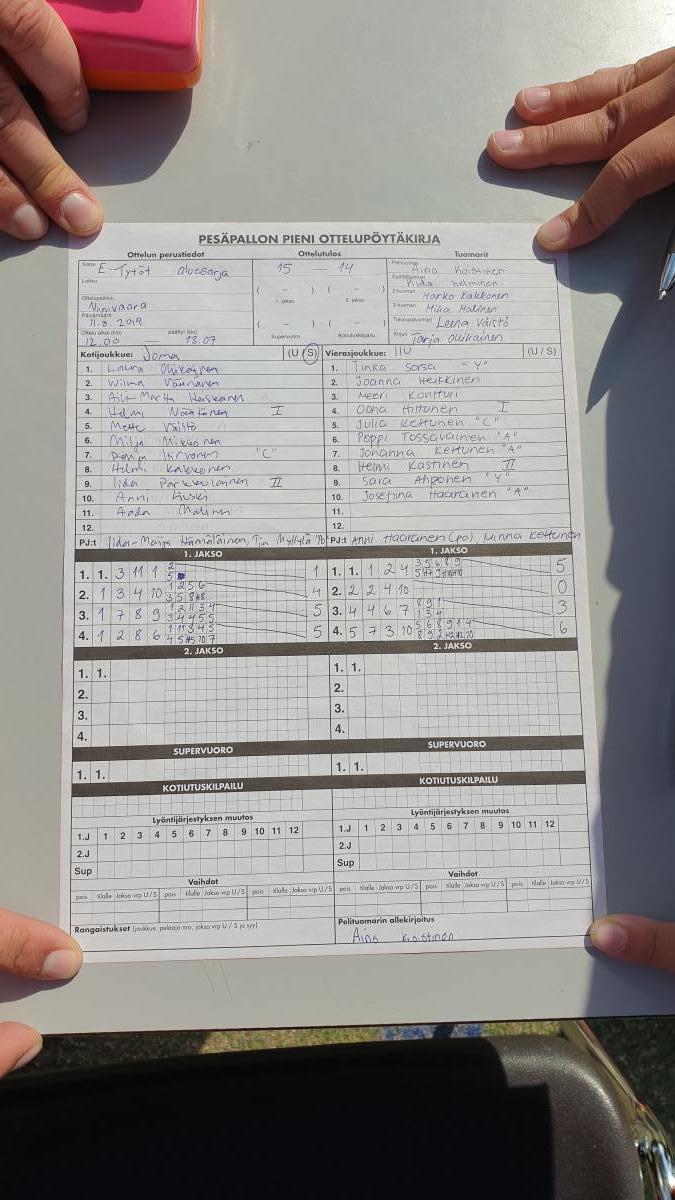 PESÄPALLON PIENI OTTELUPÖYTÄKIRJA
Ottelun perustiedot Ottelutulos Tuomarit
Sarja E-Tytöt aluesarja
15 — 14
Pelituomari Aino Koistinen
Lohko
Syöttötuomari Helminen
2-tuomari Marko Kakkonen
Ottelupaikka Niinivaara
( – ) ( – )
1. jakso 2. jakso
3-tuomari Mika Malinen
Päivämäärä 11.8.2019
Takarajatuomari Leena Väistö
Ottelu alkoi (klo) 12.00 päättyi (klo) 13.07
( – ) ( – )
Supervuoro Kotiutuskilpailu
Kirjuri Tarja Olikainen
Kotijoukkue: Joma (U / S)
1. Laura
2. Wilma
3. Martta
4. Helmi I
5. Mette Väistö
6. Milja
7. "C"
8. Helmi Kakkonen
9. Iida II
10. Anni
11. Aada Malinen
12.
PJ:t Iida-Maija Hämäläinen, Tia Myllylä
Vierasjoukkue: (U / S)
1. Tinka Sorsa "Y"
2. Joanna Heikkinen
3. Meeri Kontturi
4. Oona Hiltunen I
5. Julia Kettunen "C"
6. Peppi Tossavainen "A"
7. Johanna Kettunen "A"
8. Helmi Kastinen II
9. Sara Ahponen "Y"
10. Josefina Haaranen "A"
11.
12.
PJ:t Anni Haaranen (po), Minna Kettunen
1. JAKSO
1. 1. 3 11 1 2 5 1
2. 1 3 4 10 1 2 5 6 4
3. 1 7 8 9 5
4. 1 2 8 6 5
1. JAKSO
1. 1. 1 2 4 3 5 6 8 9 5
2. 2 2 4 10 0
3. 4 4 6 7 8 9 1 1 3 4 3
4. 5 7 3 10 5 6 8 9 1 4 6
2. JAKSO
1. 1.
2.
3.
4.
2. JAKSO
1. 1.
2.
3.
4.
SUPERVUORO
1. 1.
SUPERVUORO
1. 1.
KOTIUTUSKILPAILU
KOTIUTUSKILPAILU
Lyöntijärjestyksen muutos
1.J 1 2 3 4 5 6 7 8 9 10 11 12
2.J
Sup
Lyöntijärjestyksen muutos
1.J 1 2 3 4 5 6 7 8 9 10 11 12
2.J
Sup
Vaihdot
pois tilalle Jakso vrp U/S pois tilalle Jakso vrp U/S pois tilalle Jakso vrp U/S
Vaihdot
pois tilalle Jakso vrp U/S pois tilalle Jakso vrp U/S pois tilalle Jakso vrp U/S
Rangaistukset (joukkue, pelaaja nro, jakso vrp U / S ja syy)
Pelituomarin allekirjoitus
Aino Koistinen